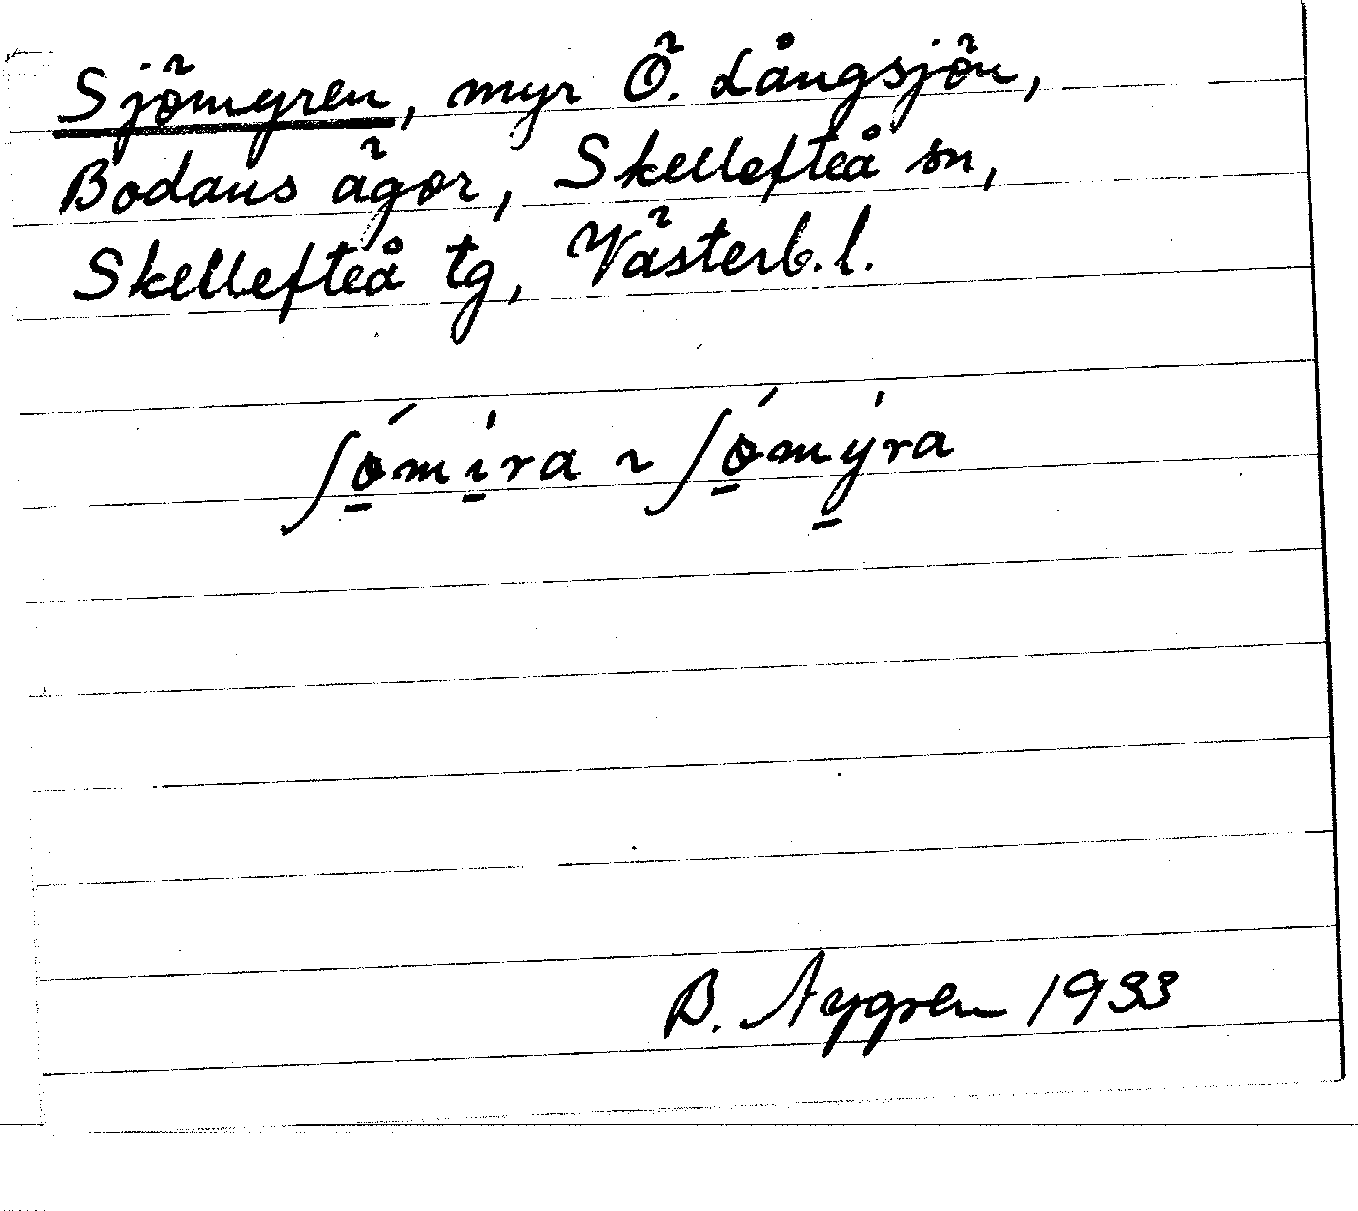 Sjömyren, myr Ö. Långsjön,
Bodans ägor, Skellefteå sn,
Skellefteå tg, Västerb. l.
ʃǿ̱mi̱̍ra ~ ʃǿ̱my̱̍ra
B. Nygren 1933